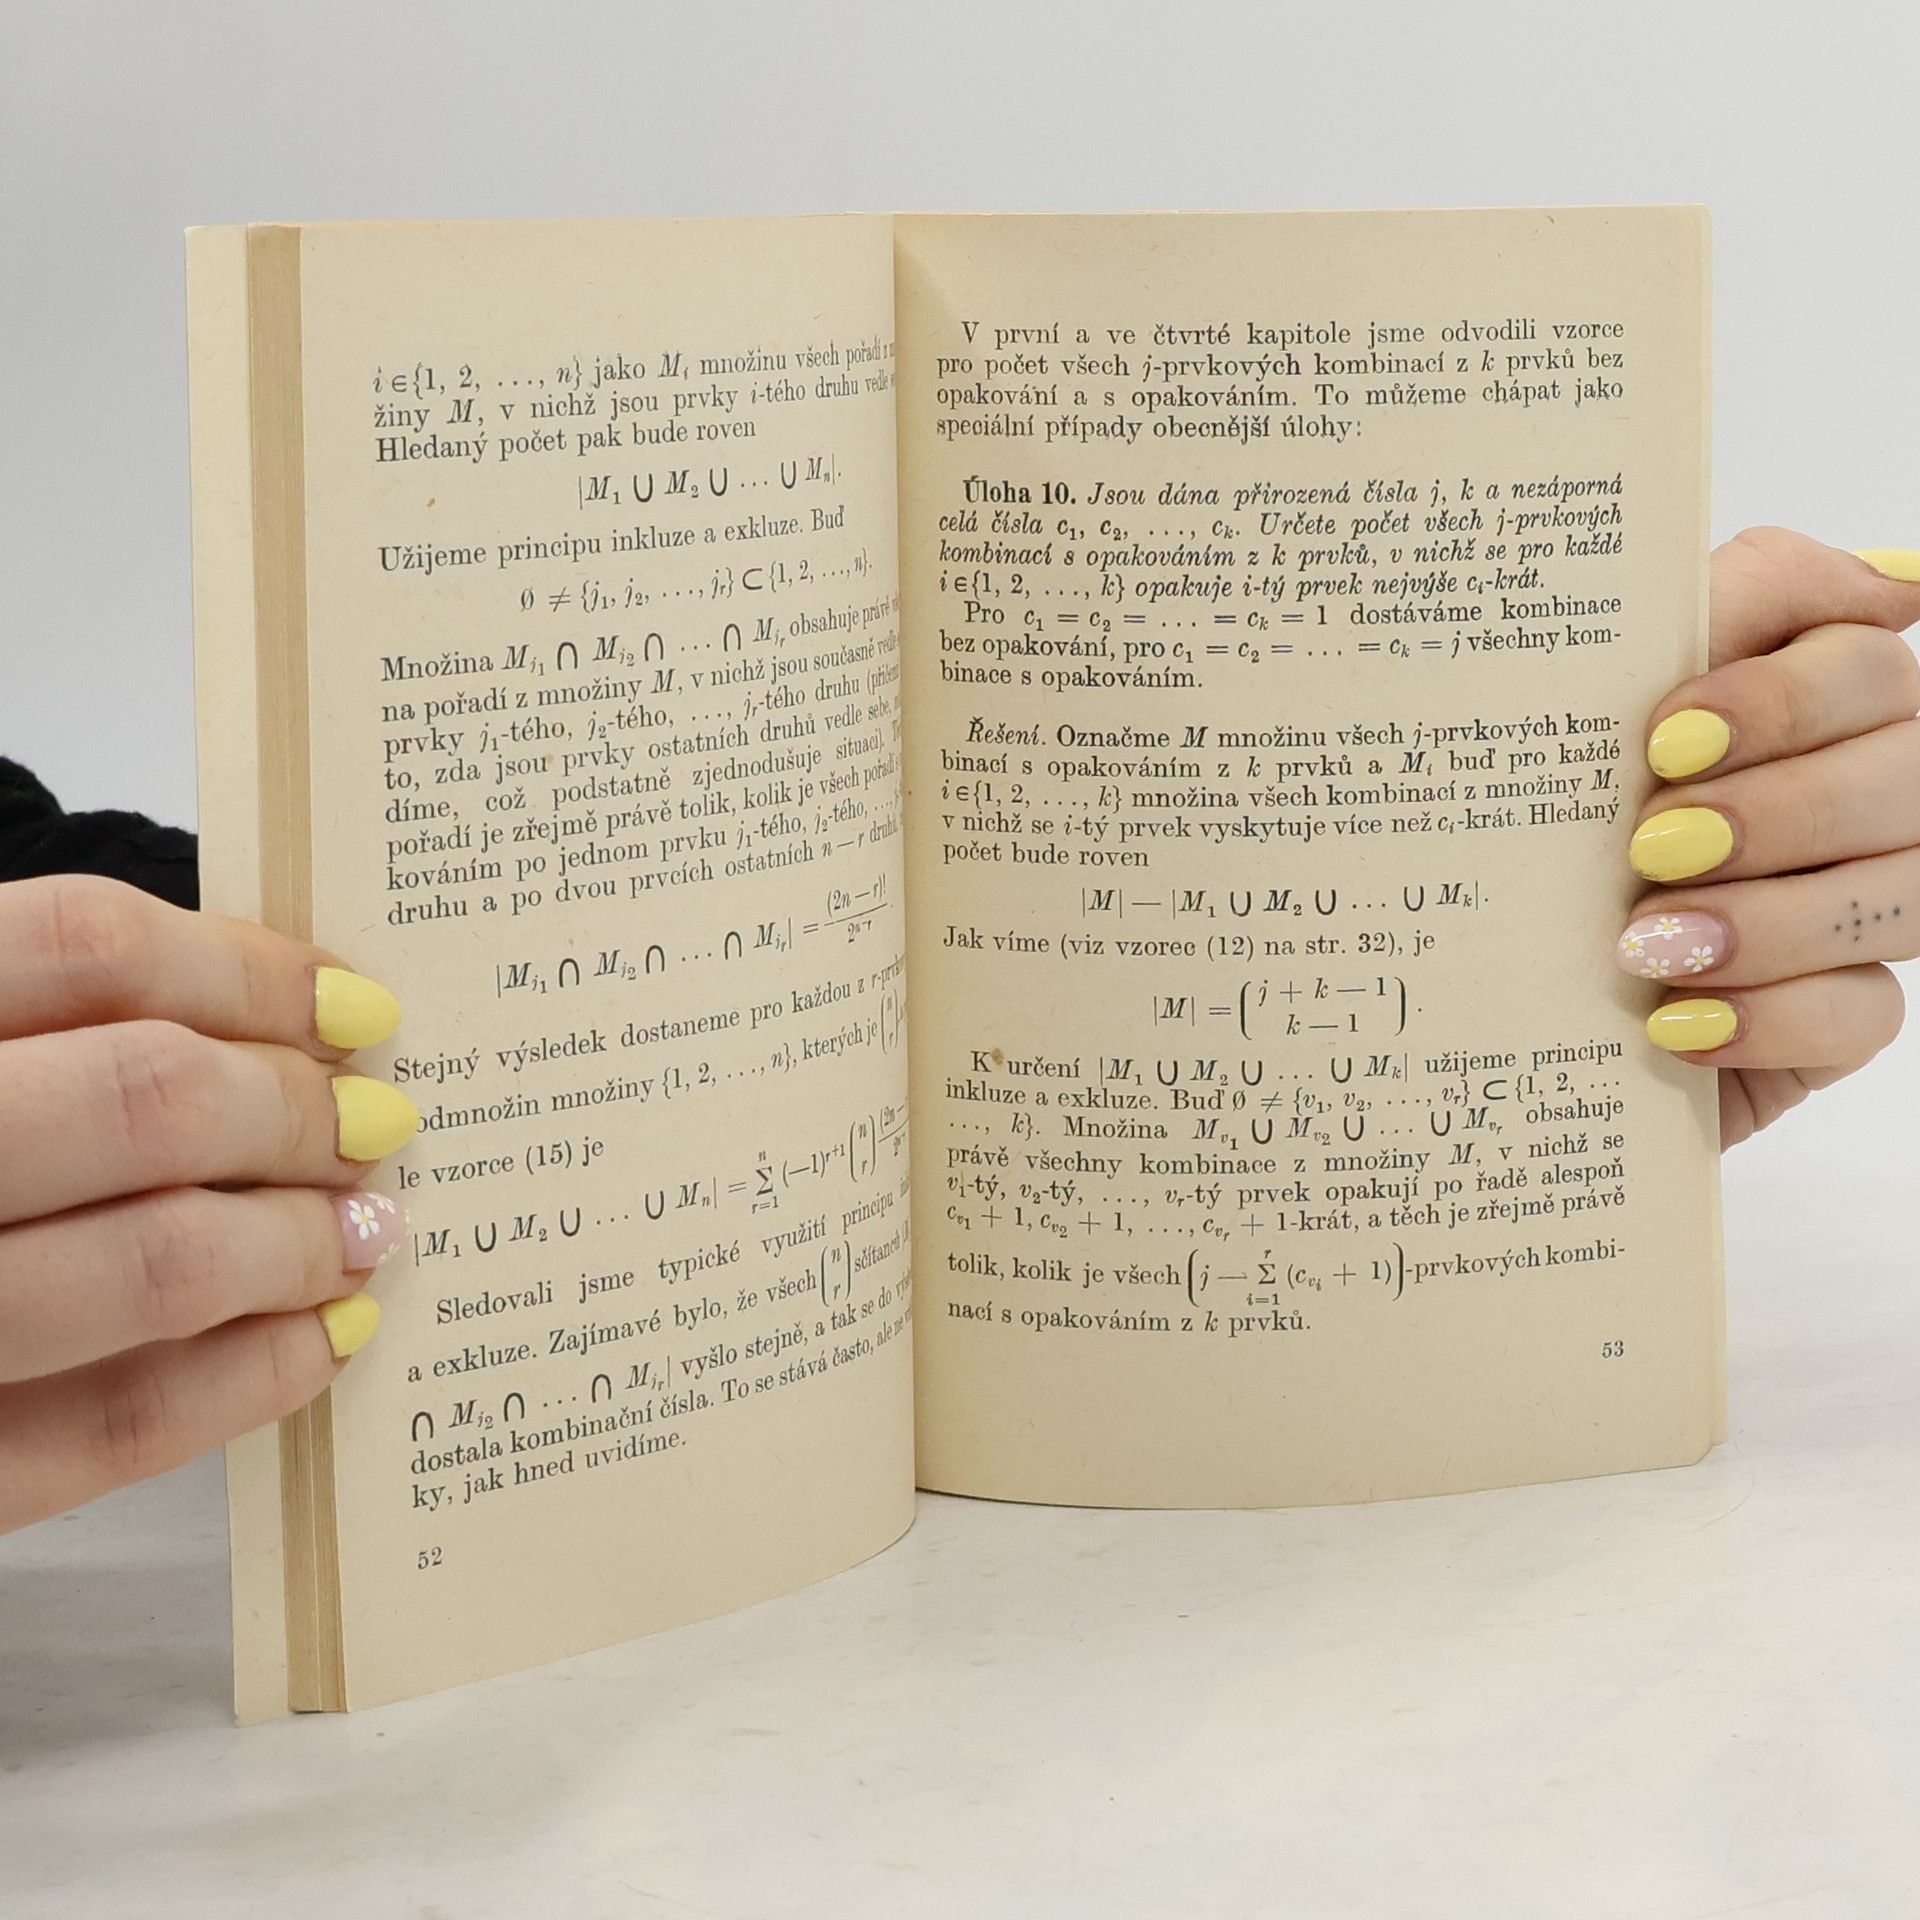 i ∈ {1, 2, ..., n} jako Mᵢ množinu všech pořadí
žiny M, v nichž jsou prvky i-tého druhu vedle
Hledaný počet pak bude roven
|M₁ ∪ M₂ ∪ ... ∪ Mₙ|.
Užijeme principu inkluze a exkluze. Buď
∅ ≠ {j₁, j₂, ..., jᵣ} ⊂ {1, 2, ..., n}.
Množina M_{j₁} ∩ M_{j₂} ∩ ... ∩ M_{jᵣ} obsahuje právě
na pořadí z množiny M, v nichž jsou současně vedle
prvky j₁-tého, j₂-tého, ..., jᵣ-tého druhu
to, zda jsou prvky ostatních druhů vedle sebe,
díme, což podstatně zjednodušuje situaci).
pořadí je zřejmě právě tolik, kolik je všech pořadí
kováním po jednom prvku j₁-tého, j₂-tého, ...,
druhu a po dvou prvcích ostatních n — r druhů,
|M_{j₁} ∩ M_{j₂} ∩ ... ∩ M_{jᵣ}| = (2n — r)! / 2ⁿ⁻ʳ.
Stejný výsledek dostaneme pro každou z
odmnožin množiny {1, 2, ..., n}, kterých je (n r)
le vzorce (15) je
|M₁ ∪ M₂ ∪ ... ∪ Mₙ| = Σ_{r=1}^{n} (—1)ʳ⁺¹ (n r)
Sledovali jsme typické využití principu
a exkluze. Zajímavé bylo, že všech (n r) sčítanců
∩ M_{j₂} ∩ ... ∩ M_{jᵣ}| vyšlo stejně, a tak se do
dostala kombinační čísla. To se stává často, ale ne
ky, jak hned uvidíme.
52
V první a ve čtvrté kapitole jsme odvodili vzorce
pro počet všech j-prvkových kombinací z k prvků bez
opakování a s opakováním. To můžeme chápat jako
speciální případy obecnější úlohy:
Úloha 10. Jsou dána přirozená čísla j, k a nezáporná
celá čísla c₁, c₂, ..., cₖ. Určete počet všech j-prvkových
kombinací s opakováním z k prvků, v nichž se pro každé
i ∈ {1, 2, ..., k} opakuje i-tý prvek nejvýše cᵢ-krát.
Pro c₁ = c₂ = ... = cₖ = 1 dostáváme kombinace
bez opakování, pro c₁ = c₂ = ... = cₖ = j všechny kom-
binace s opakováním.
Řešení. Označme M množinu všech j-prvkových kom-
binací s opakováním z k prvků a Mᵢ buď pro každé
i ∈ {1, 2, ..., k} množina všech kombinací z množiny M,
v nichž se i-tý prvek vyskytuje více než cᵢ-krát. Hledaný
počet bude roven
|M| — |M₁ ∪ M₂ ∪ ... ∪ Mₖ|.
Jak víme (viz vzorec (12) na str. 32), je
|M| = (j + k — 1 k — 1).
K určení |M₁ ∪ M₂ ∪ ... ∪ Mₖ| užijeme principu
inkluze a exkluze. Buď ∅ ≠ {v₁, v₂, ..., vᵣ} ⊂ {1, 2, ...
..., k}. Množina M_{v₁} ∪ M_{v₂} ∪ ... ∪ M_{vᵣ} obsahuje
právě všechny kombinace z množiny M, v nichž se
v₁-tý, v₂-tý, ..., vᵣ-tý prvek opakují po řadě alespoň
c_{v₁} + 1, c_{v₂} + 1, ..., c_{vᵣ} + 1-krát, a těch je zřejmě právě
tolik, kolik je všech (j — Σ_{i=1}^{r} (c_{vᵢ} + 1))-prvkových kombi-
nací s opakováním z k prvků.
53